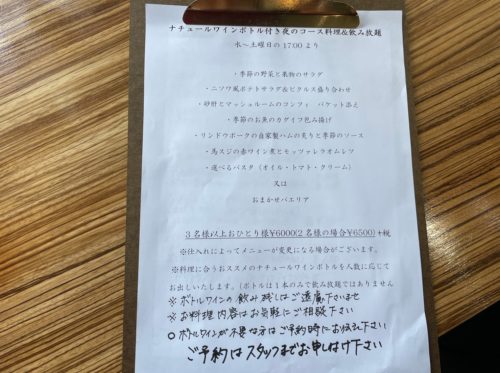 ナチュールワインボトル付き夜のコース料理&飲み放題
水～土曜日の17:00より
・季節の野菜と果物のサラダ
・ニソワ風ポテトサラダ&ピクルス盛り合わせ
・砂肝とマッシュルームのコンフィ バケット添え
・季節のお魚のカダイフ包み揚げ
・リンドウポークの自家製ハムの炙りと季節のソース
・馬スジの赤ワイン煮とモッツァレラオムレツ
・選べるパスタ（オイル・トマト・クリーム）
又は
おまかせパエリア
3名様以上おひとり様¥6000(2名様の場合¥6500) +税
※仕入れによってメニューが変更になる場合がございます。
※料理に合うおススメのナチュールワインボトルを人数に応じて
お出しいたします。(ボトルは1本のみで飲み放題ではありません
※ボトルワインの飲み残しはご遠慮下さいませ
※お料理内容はお気軽にご相談下さい
○ボトルワインが不要な方はご予約時にお伝え下さい
ご予約はスタッフまでお申し付け下さい